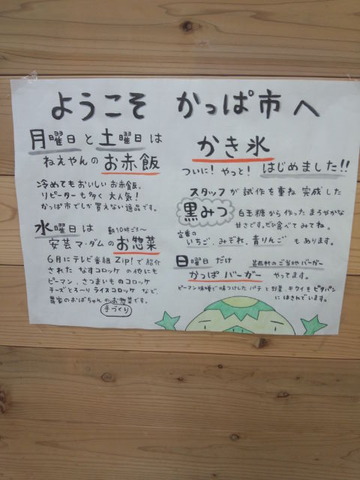 ようこそ かっぱ市へ
月曜日と土曜日は
ねえやんのお赤飯
冷めてもおいしいお赤飯。
リピーターも多く大人気!
かっぱ市でしか買えない逸品です。
水曜日は
安芸マダムのお惣菜
6月にテレビ番組 Zip!で紹介
された なすコロッケの他にも
ピーマン、さつまいものコロッケ
チーズとろ~りライスコロッケ など
農家のおばちゃんのお惣菜です。
手づくり
かき氷
ついに!やっと!はじめました!!
スタッフが試作を重ね完成した
黒みつ
甘さです。ぜひ食べてみてね。
定番の
いちご みぞれ、青りんごもあります。
日曜日だけ
芸西村のご当地バーガー
かっぱバーガー やってます。
ピーマン味噌で味つけしたパテと野菜、キウイをピタパン
にはさんでいます。